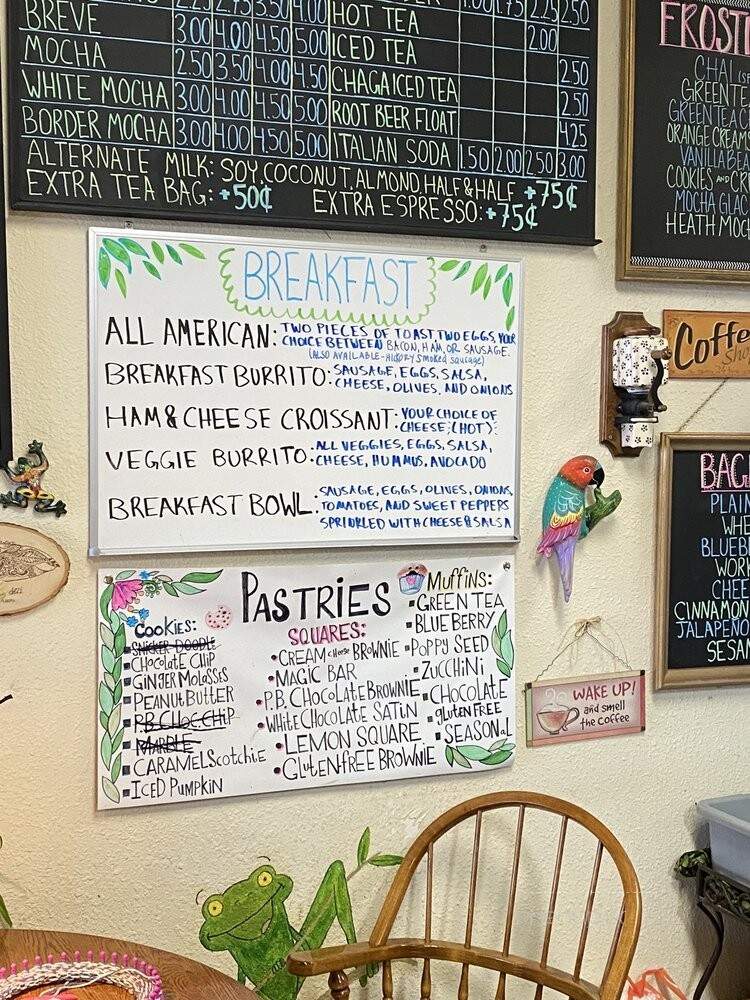 BREVE
MOCHA 3.00 4.00 4.50 5.00
WHITE MOCHA 3.00 4.00 4.50 5.00
BORDER MOCHA 3.00 4.00 4.50 5.00
HOT TEA 2.25 2.50
ICED TEA 2.00
CHAGA ICED TEA 2.50
ROOT BEER FLOAT 4.25
ITALIAN SODA 1.50 2.00 2.50 3.00
ALTERNATE MILK: SOY, COCONUT, ALMOND, HALF & HALF +75¢
EXTRA TEA BAG: +50¢ EXTRA ESPRESSO: +75¢
BREAKFAST
ALL AMERICAN: TWO PIECES OF TOAST, TWO EGGS, YOUR
CHOICE BETWEEN BACON, HAM, OR SAUSAGE.
(ALSO AVAILABLE - HICKORY SMOKED SAUSAGE)
BREAKFAST BURRITO: SAUSAGE, EGGS, SALSA,
CHEESE, OLIVES, AND ONIONS
HAM & CHEESE CROISSANT: YOUR CHOICE OF
CHEESE (HOT):
VEGGIE BURRITO: ALL VEGGIES, EGGS, SALSA,
CHEESE, HUMMUS, AVOCADO
BREAKFAST BOWL: SAUSAGE, EGGS, OLIVES, ONIONS,
TOMATOES, AND SWEET PEPPERS
SPRINKLED WITH CHEESE & SALSA
PASTRIES
COOKIES:
SNICKER DOODLE
CHOCOLATE CHIP
GINGER MOLASSES
PEANUT BUTTER
P.B. CHOC. CHIP
MARBLE
CARAMEL SCOTCHIE
ICED PUMPKIN
SQUARES:
CREAM CHEESE BROWNIE
MAGIC BAR
P.B. CHOCOLATE BROWNIE
WHITE CHOCOLATE SATIN
LEMON SQUARE
GLUTEN FREE BROWNIE
MUFFINS:
GREEN TEA
BLUEBERRY
POPPY SEED
ZUCCHINI
CHOCOLATE
GLUTEN FREE
SEASONAL
CHAI
GREEN TE
GREEN TEA C
ORANGE CREAMS
VANILLA BE
COOKIES AND CR
MOCHA GLAC
HEATH MOC
Coffee
WAKE UP!
and smell
the coffee
PLAIN
WHE
BLUEB
WOR
CHEE
CINNAMON
JALAPEÑO
SESAM